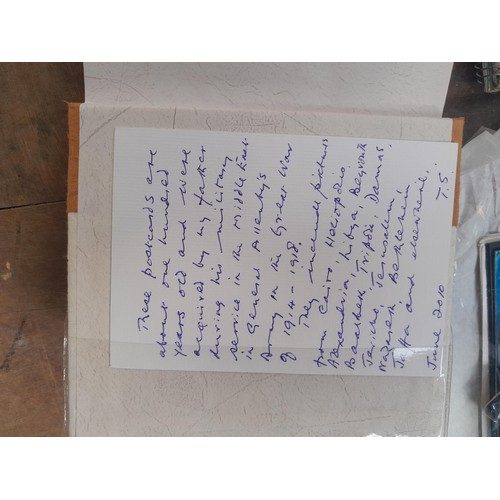 These postcards are
about one hundred
years old and were
acquired by my father
during his military
service in the Middle East
in General Allenby's
Army in the Great War
of 1914-1918.
They include pictures
from Cairo, Heliopolis
Alexandria, Libya,
Baalbek, Tripoli,
Jericho, Jerusalem,
Nazareth, Bethlehem,
Jaffa and elsewhere.
T.S.
June 2010